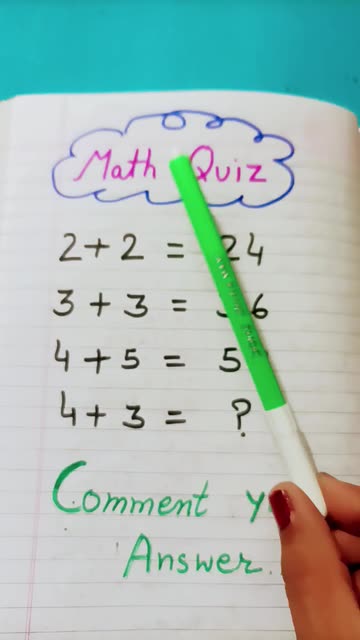 Math Quiz
2 + 2 = 24
3 + 3 = 36
4 + 5 = 5
4 + 3 = ?
Comment
Answer.